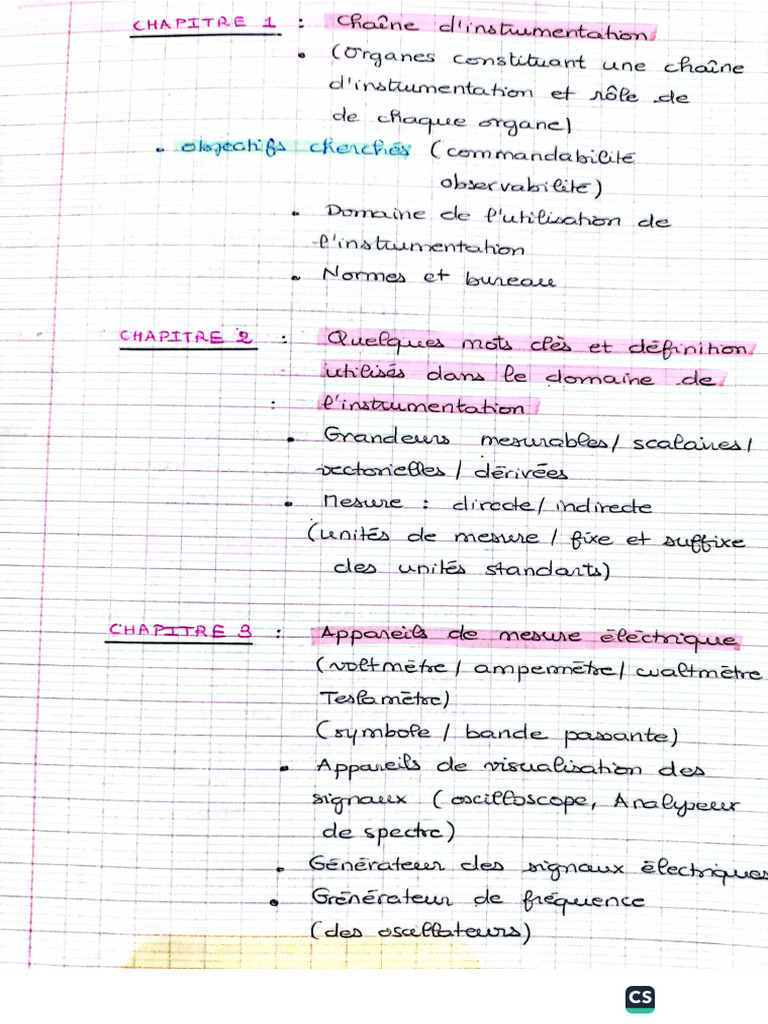 CHAPITRE 1 : Chaîne d'instrumentation
• (Organes constituant une chaîne
d'instrumentation et rôle de
de chaque organe)
• objectifs cherchés (commandabilité
observabilité)
• Domaine de l'utilisation de
l'instrumentation
• Normes et bureau
CHAPITRE 2 : Quelques mots clés et définition
utilisés dans le domaine de
: l'instrumentation
• Grandeurs mesurables / scalaires /
vectorielles / dérivées
• Mesure : directe / indirecte
(unités de mesure / fixe et suffixe
des unités standarts)
CHAPITRE 3 : Appareils de mesure électrique
(voltmètre / ampermètre / waltmètre
Teslamètre)
(symbole / bande passante)
• Appareils de visualisation des
signaux (oscilloscope, Analyseur
de spectre)
• Générateur des signaux électriques
• Générateur de fréquence
(des oscillateurs)
CS